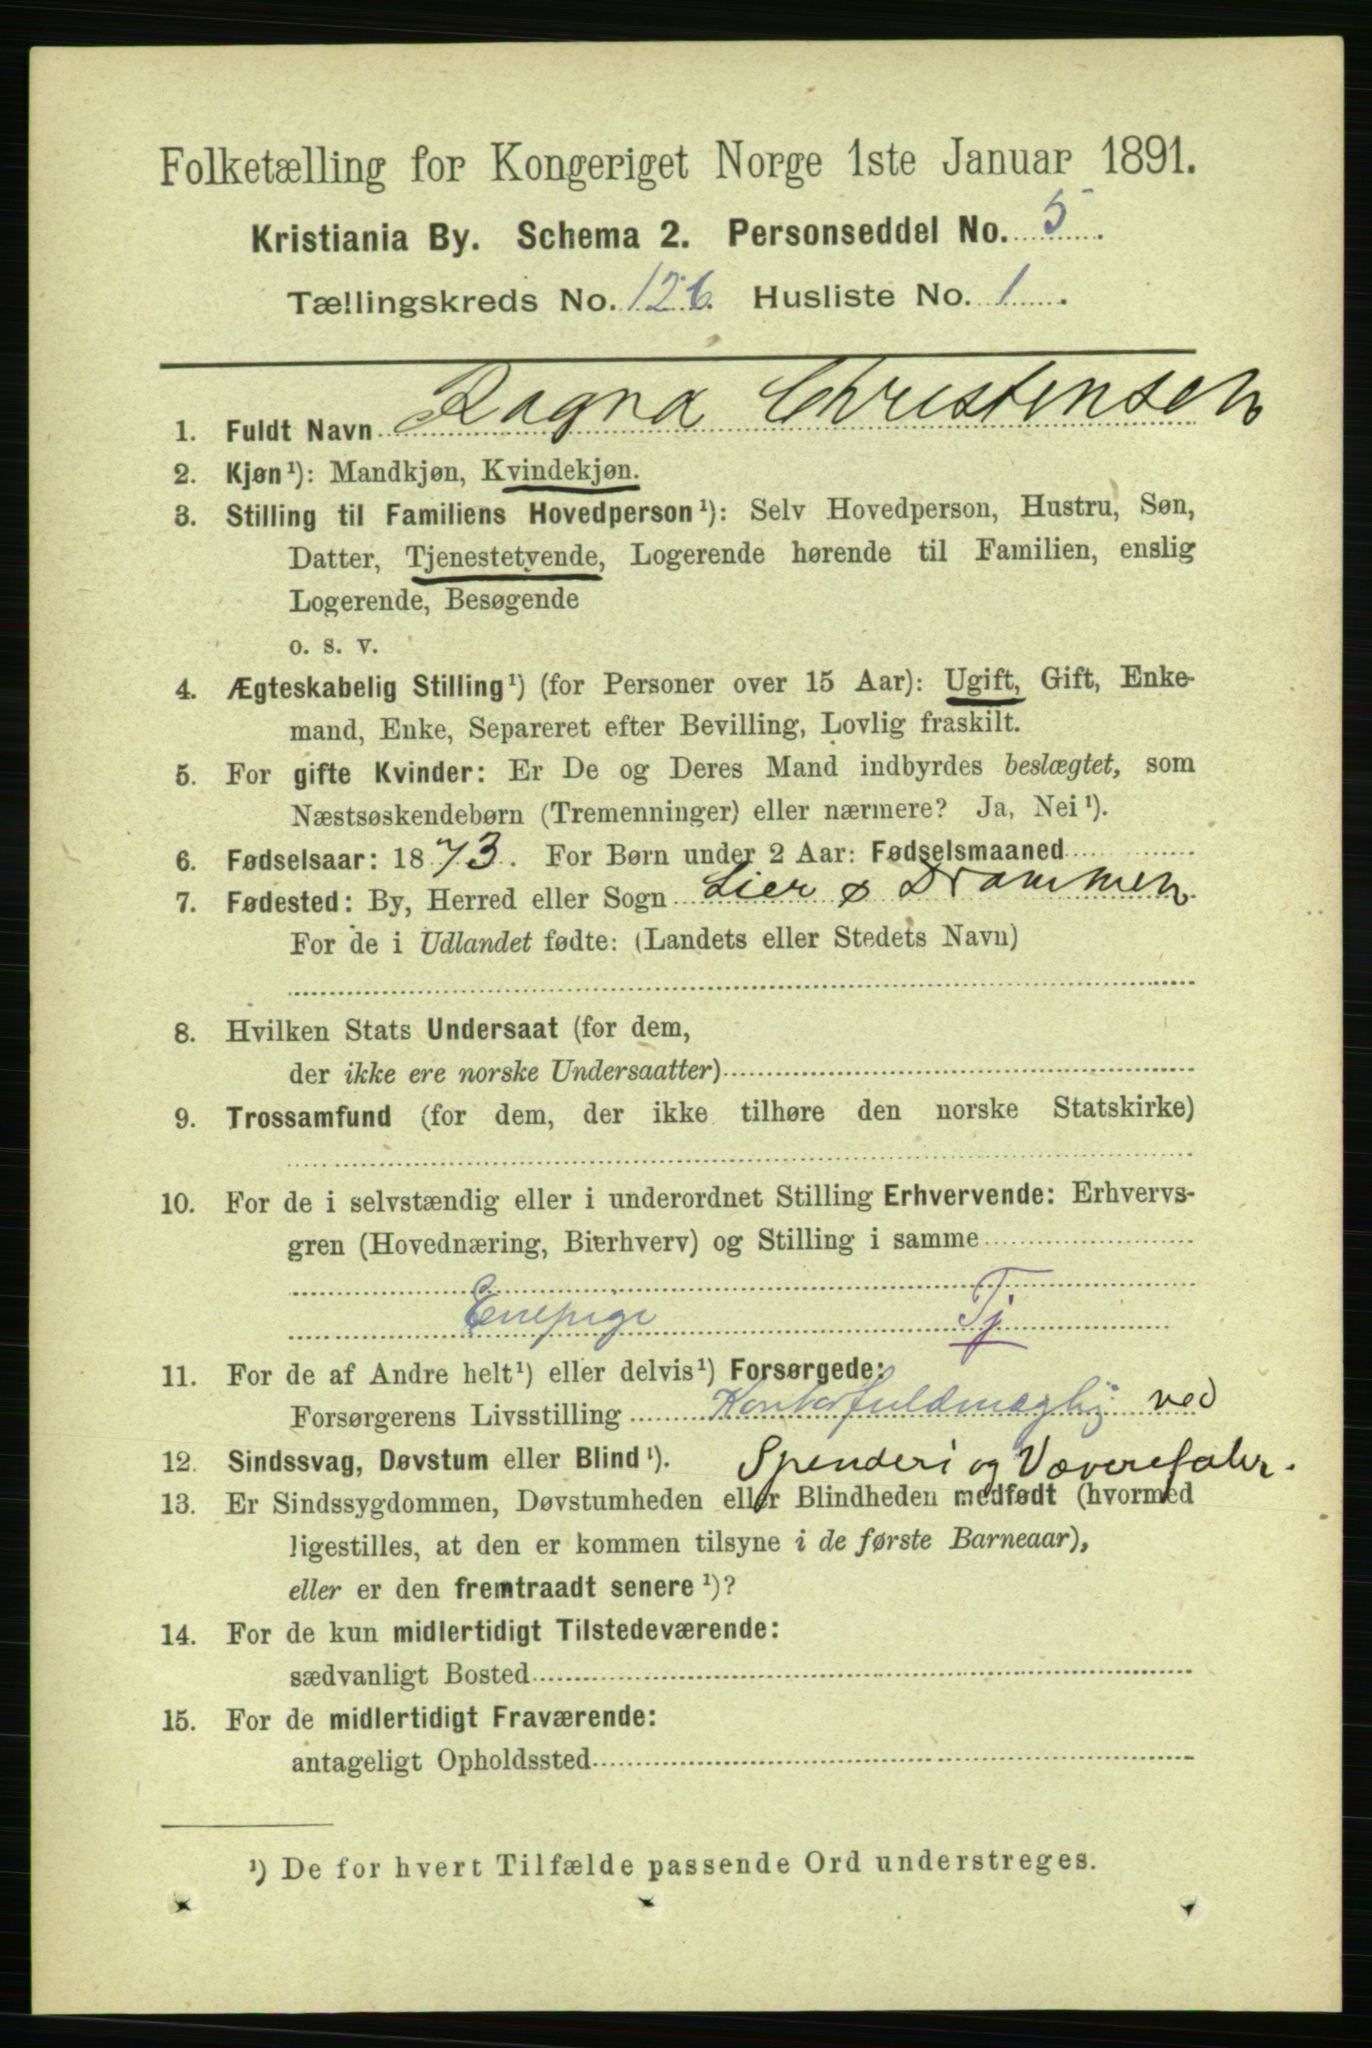 Folketælling for Kongeriget Norge 1ste Januar 1891.
Kristiania By. Schema 2. Personseddel No. 5
Tællingskreds No. 126. Husliste No. 1
1. Fuldt Navn Ragna Christensen
2. Kjøn¹): Mandkjøn, Kvindekjøn.
3. Stilling til Familiens Hovedperson¹): Selv Hovedperson, Hustru, Søn,
Datter, Tjenestetyende, Logerende hørende til Familien, enslig
Logerende, Besøgende
o. s. v.
4. Ægteskabelig Stilling¹) (for Personer over 15 Aar): Ugift, Gift, Enke-
mand, Enke, Separeret efter Bevilling, Lovlig fraskilt.
5. For gifte Kvinder: Er De og Deres Mand indbyrdes beslægtet, som
Næstsøskendebørn (Tremenninger) eller nærmere? Ja, Nei¹).
6. Fødselsaar: 1873. For Børn under 2 Aar: Fødselsmaaned
7. Fødested: By, Herred eller Sogn Lier Drammen
For de i Udlandet fødte: (Landets eller Stedets Navn)
8. Hvilken Stats Undersaat (for dem,
der ikke ere norske Undersaatter)
9. Trossamfund (for dem, der ikke tilhøre den norske Statskirke)
10. For de i selvstændig eller i underordnet Stilling Erhvervende: Erhvervs-
gren (Hovednæring, Bierhverv) og Stilling i samme
Enepige Tj
11. For de af Andre helt¹) eller delvis¹) Forsørgede:
Forsørgerens Livsstilling Kontorfuldmægtig ved
12. Sindssvag, Døvstum eller Blind¹). Spenderi og Væverefaber.
13. Er Sindssygdommen, Døvstumheden eller Blindheden medfødt (hvormed
ligestilles, at den er kommen tilsyne i de første Barneaar),
eller er den fremtraadt senere¹)?
14. For de kun midlertidigt Tilstedeværende:
sædvanligt Bosted
15. For de midlertidigt Fraværende:
antageligt Opholdssted
¹) De for hvert Tilfælde passende Ord understreges.